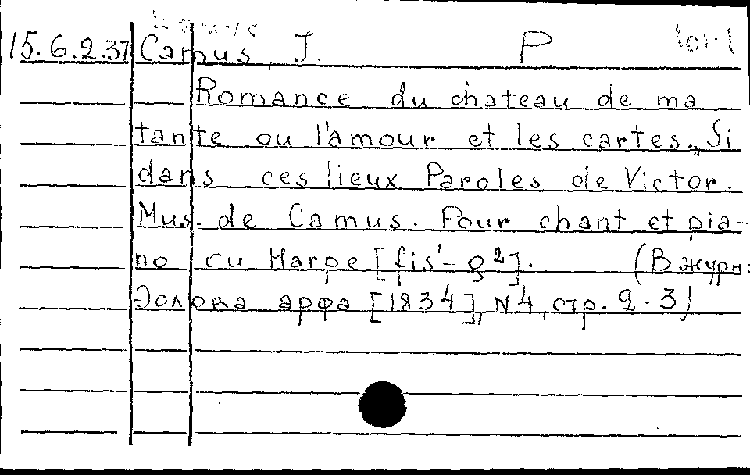 15.6.2.37 Camus, J. P
Romance du chateau de ma
tante ou l'amour et les cartes „Si
dans ces lieux Paroles de Victor.
Mus. de Camus. Pour chant et pia-
no cu Harpe [fis'-g²]. (В журн:
Эолова арфа [1834], N4, стр. 2-3)